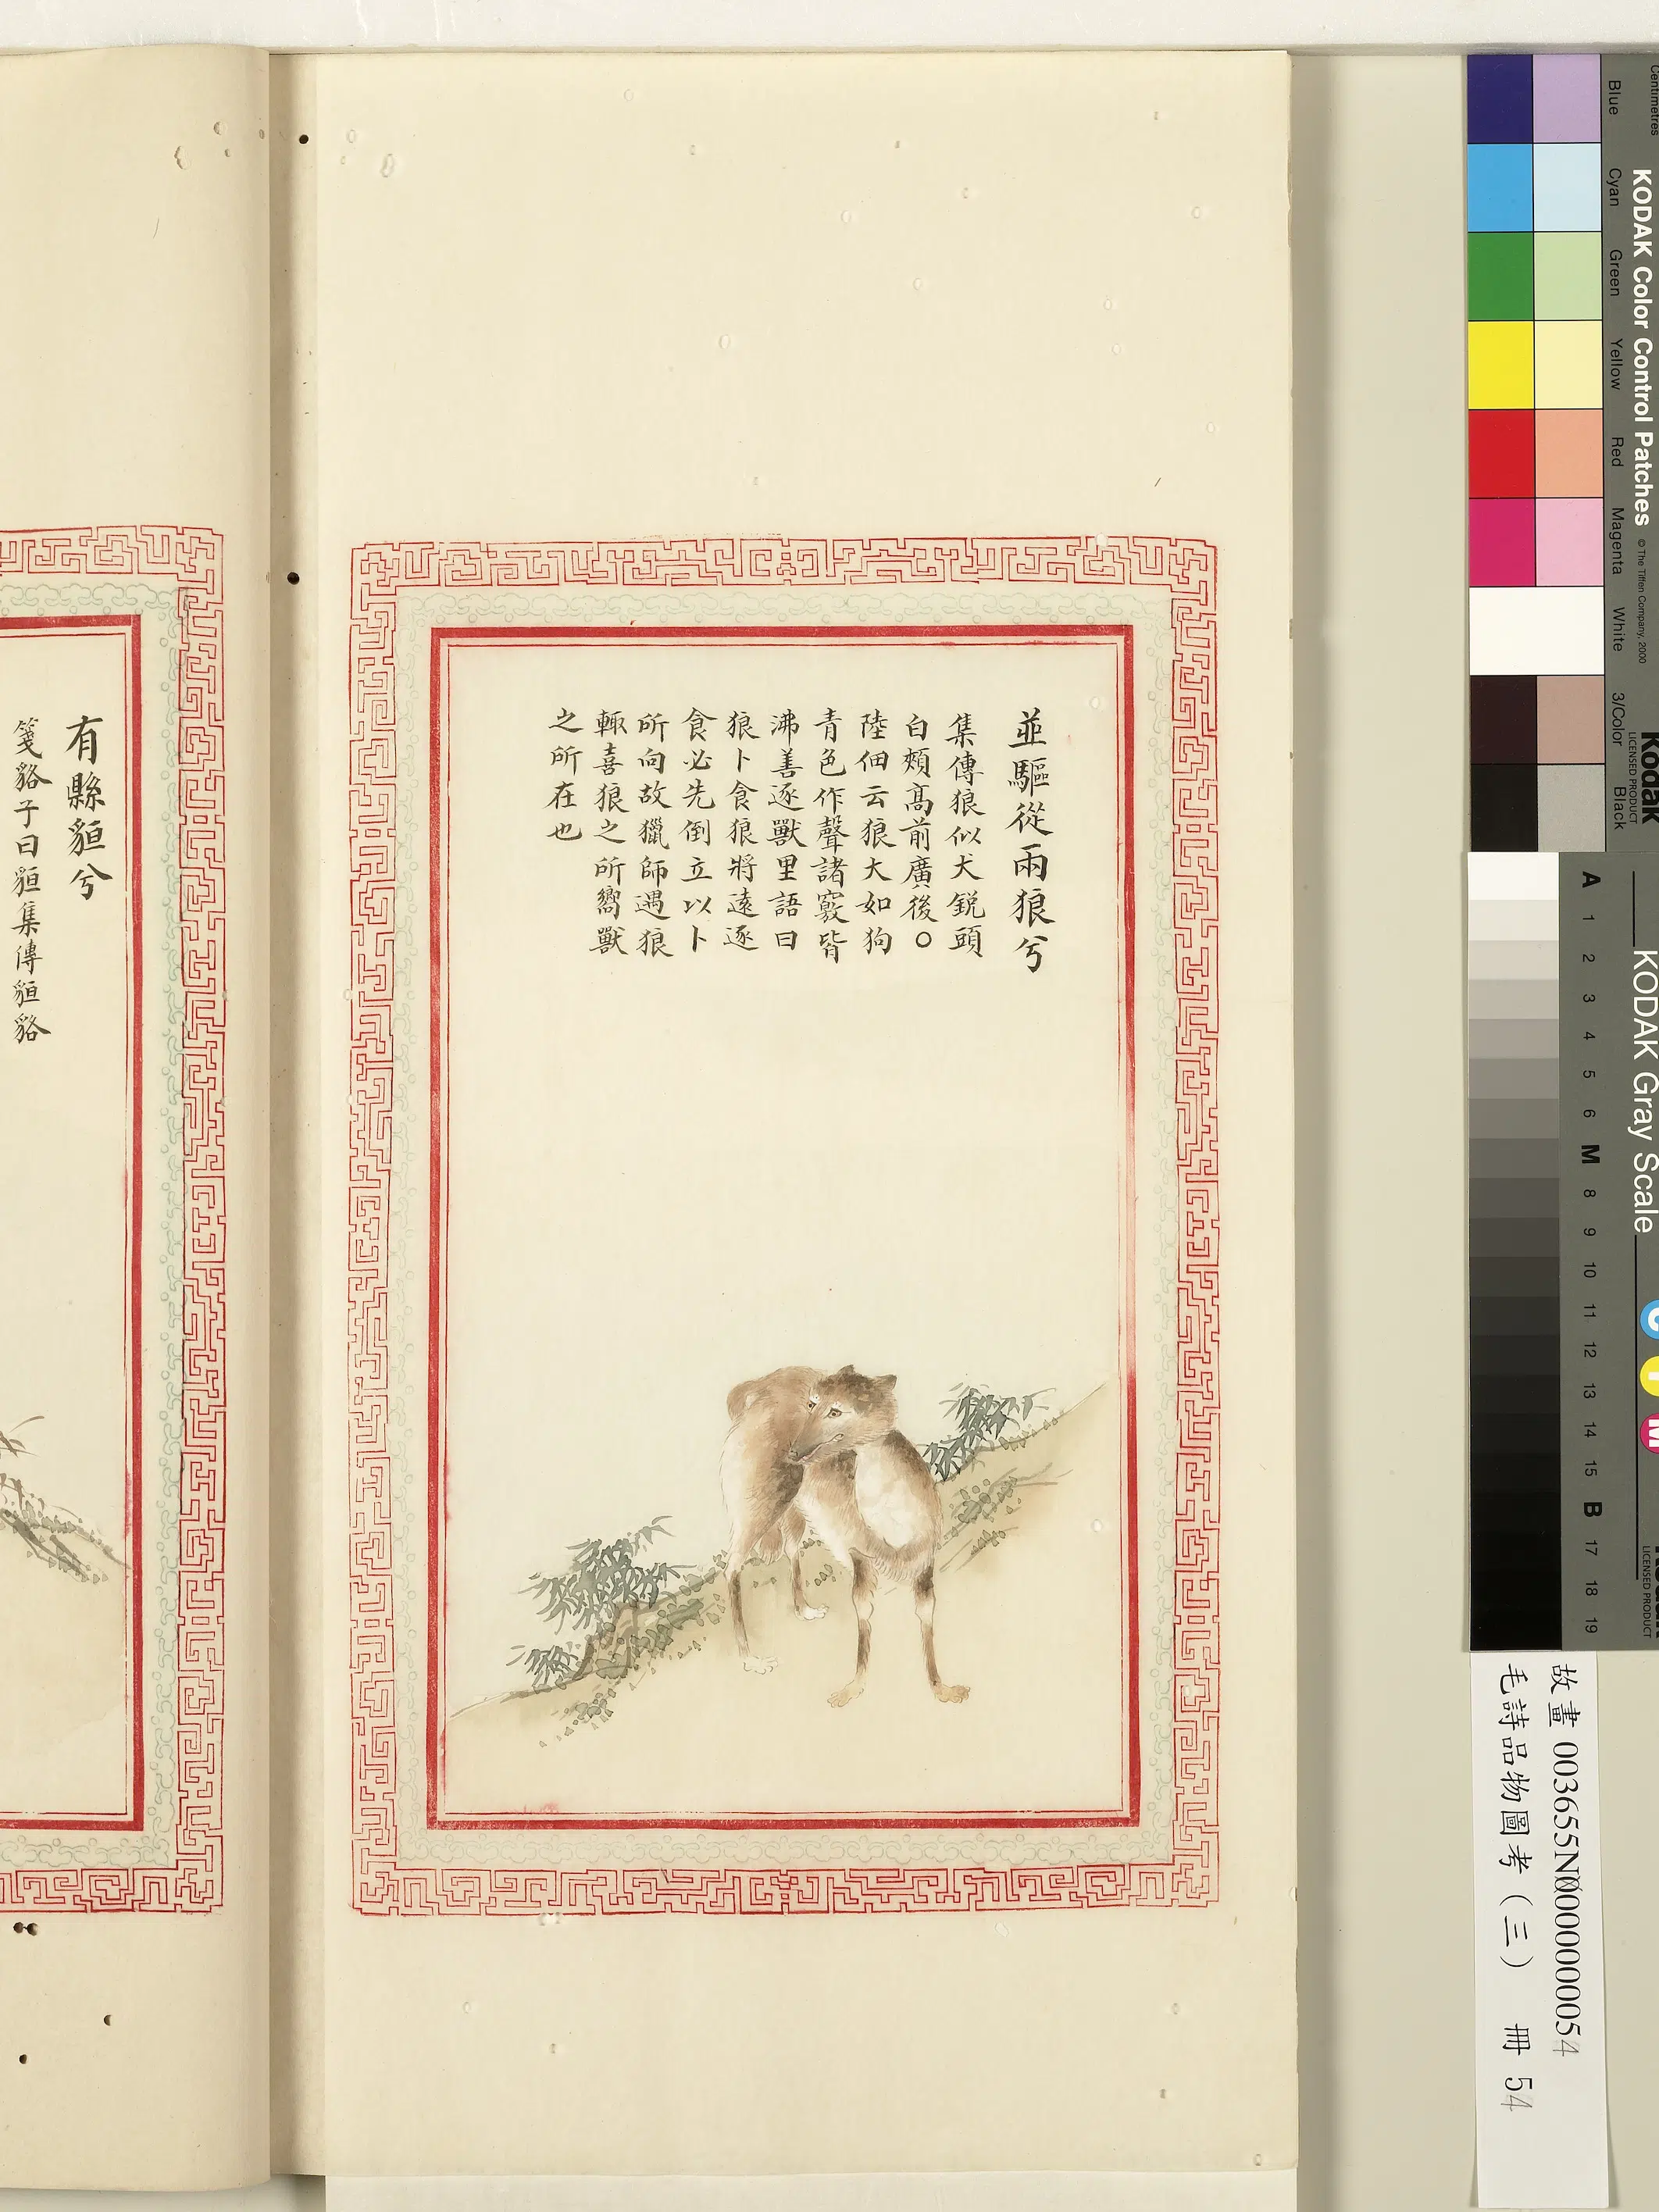 並驅從兩狼兮
集傳狼似犬銳頭
白頰高前廣後○
陸佃云狼大如狗
青色作聲諸竅皆
沸善逐獸里語曰
狼卜食狼將遠逐
食必先倒立以卜
所向故獵師遇狼
輙喜狼之所嚮獸
之所在也
有縣貆兮
箋貉子曰貆集傳貆貉
KODAK Color Control Patches
© The Tiffen Company, 2000
Kodak
LICENSED PRODUCT
Centimetres
Blue
Cyan
Green
Yellow
Red
Magenta
White
3/Color
Black
KODAK Gray Scale
C
Y
M
LICENSED PRODUCT
A 1 2 3 4 5 6 M 8 9 10 11 12 13 14 15 B 17 18 19
故畫 003655N000000054
毛詩品物圖考(三) 冊 54